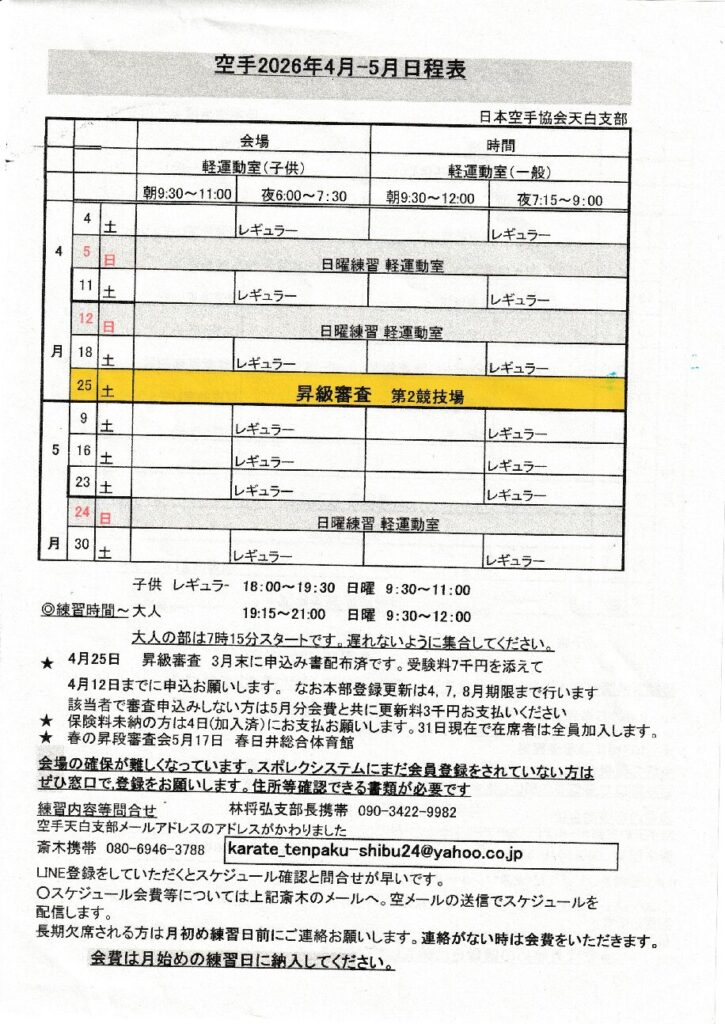 空手2026年4月-5月日程表
日本空手協会天白支部
会場 時間
軽運動室(子供) 軽運動室(一般)
朝9:30～11:00 夜6:00～7:30 朝9:30～12:00 夜7:15～9:00
4 土 レギュラー レギュラー
4 5 日 日曜練習 軽運動室
11 土 レギュラー レギュラー
12 日 日曜練習 軽運動室
月 18 土 レギュラー レギュラー
25 土 昇級審査 第2競技場
9 土 レギュラー レギュラー
5 16 土 レギュラー レギュラー
23 土 レギュラー レギュラー
24 日 日曜練習 軽運動室
月 30 土 レギュラー レギュラー
子供 レギュラー 18:00～19:30 日曜 9:30～11:00
◎練習時間～大人 19:15～21:00 日曜 9:30～12:00
大人の部は7時15分スタートです。遅れないように集合してください。
★ 4月25日 昇級審査 3月末に申込み書配布済です。受験料7千円を添えて
4月12日までに申込お願いします。 なお本部登録更新は4, 7, 8月期限まで行います
該当者で審査申込みしない方は5月分会費と共に更新料3千円お支払いください
★ 保険料未納の方は4日(加入済)にお支払お願いします。31日現在で在席者は全員加入します。
★ 春の昇段審査会5月17日 春日井総合体育館
会場の確保が難しくなっています。スポレクシステムにまだ会員登録をされていない方は
ぜひ窓口で,登録をお願いします。住所等確認できる書類が必要です
練習内容等問合せ 林将弘支部長携帯 090-3422-9982
空手天白支部メールアドレスのアドレスがかわりました
斎木携帯 080-6946-3788 karate_tenpaku-shibu24@yahoo.co.jp
LINE登録をしていただくとスケジュール確認と問合せが早いです。
〇スケジュール会費等については上記斎木のメールへ。空メールの送信でスケジュールを
配信します。
長期欠席される方は月初め練習日前にご連絡お願いします。連絡がない時は会費をいただきます。
会費は月始めの練習日に納入してください。